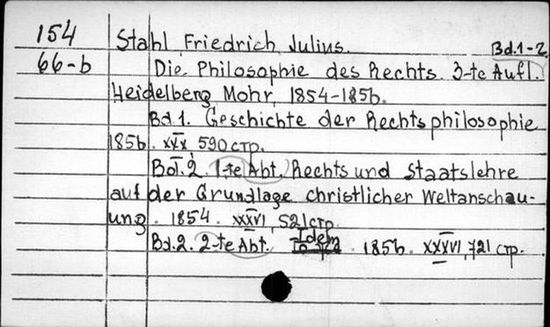 154 Stahl, Friedrich Julius. Bd.1-2
66-b Die Philosophie des Rechts. 3-te Aufl.
Heidelberg Mohr, 1854-1856.
Bd 1. Geschichte der Rechtsphilosophie
1856. XXX, 590 стр.
Bd. 2. 1-te Abt. Rechts und Staatslehre
auf der Grundlage christlicher Weltanschau-
ung. 1854. XXXVI, 521 стр.
Bd.2. 2-te Abt. Idem. 1856. XXXVI, 721 стр.